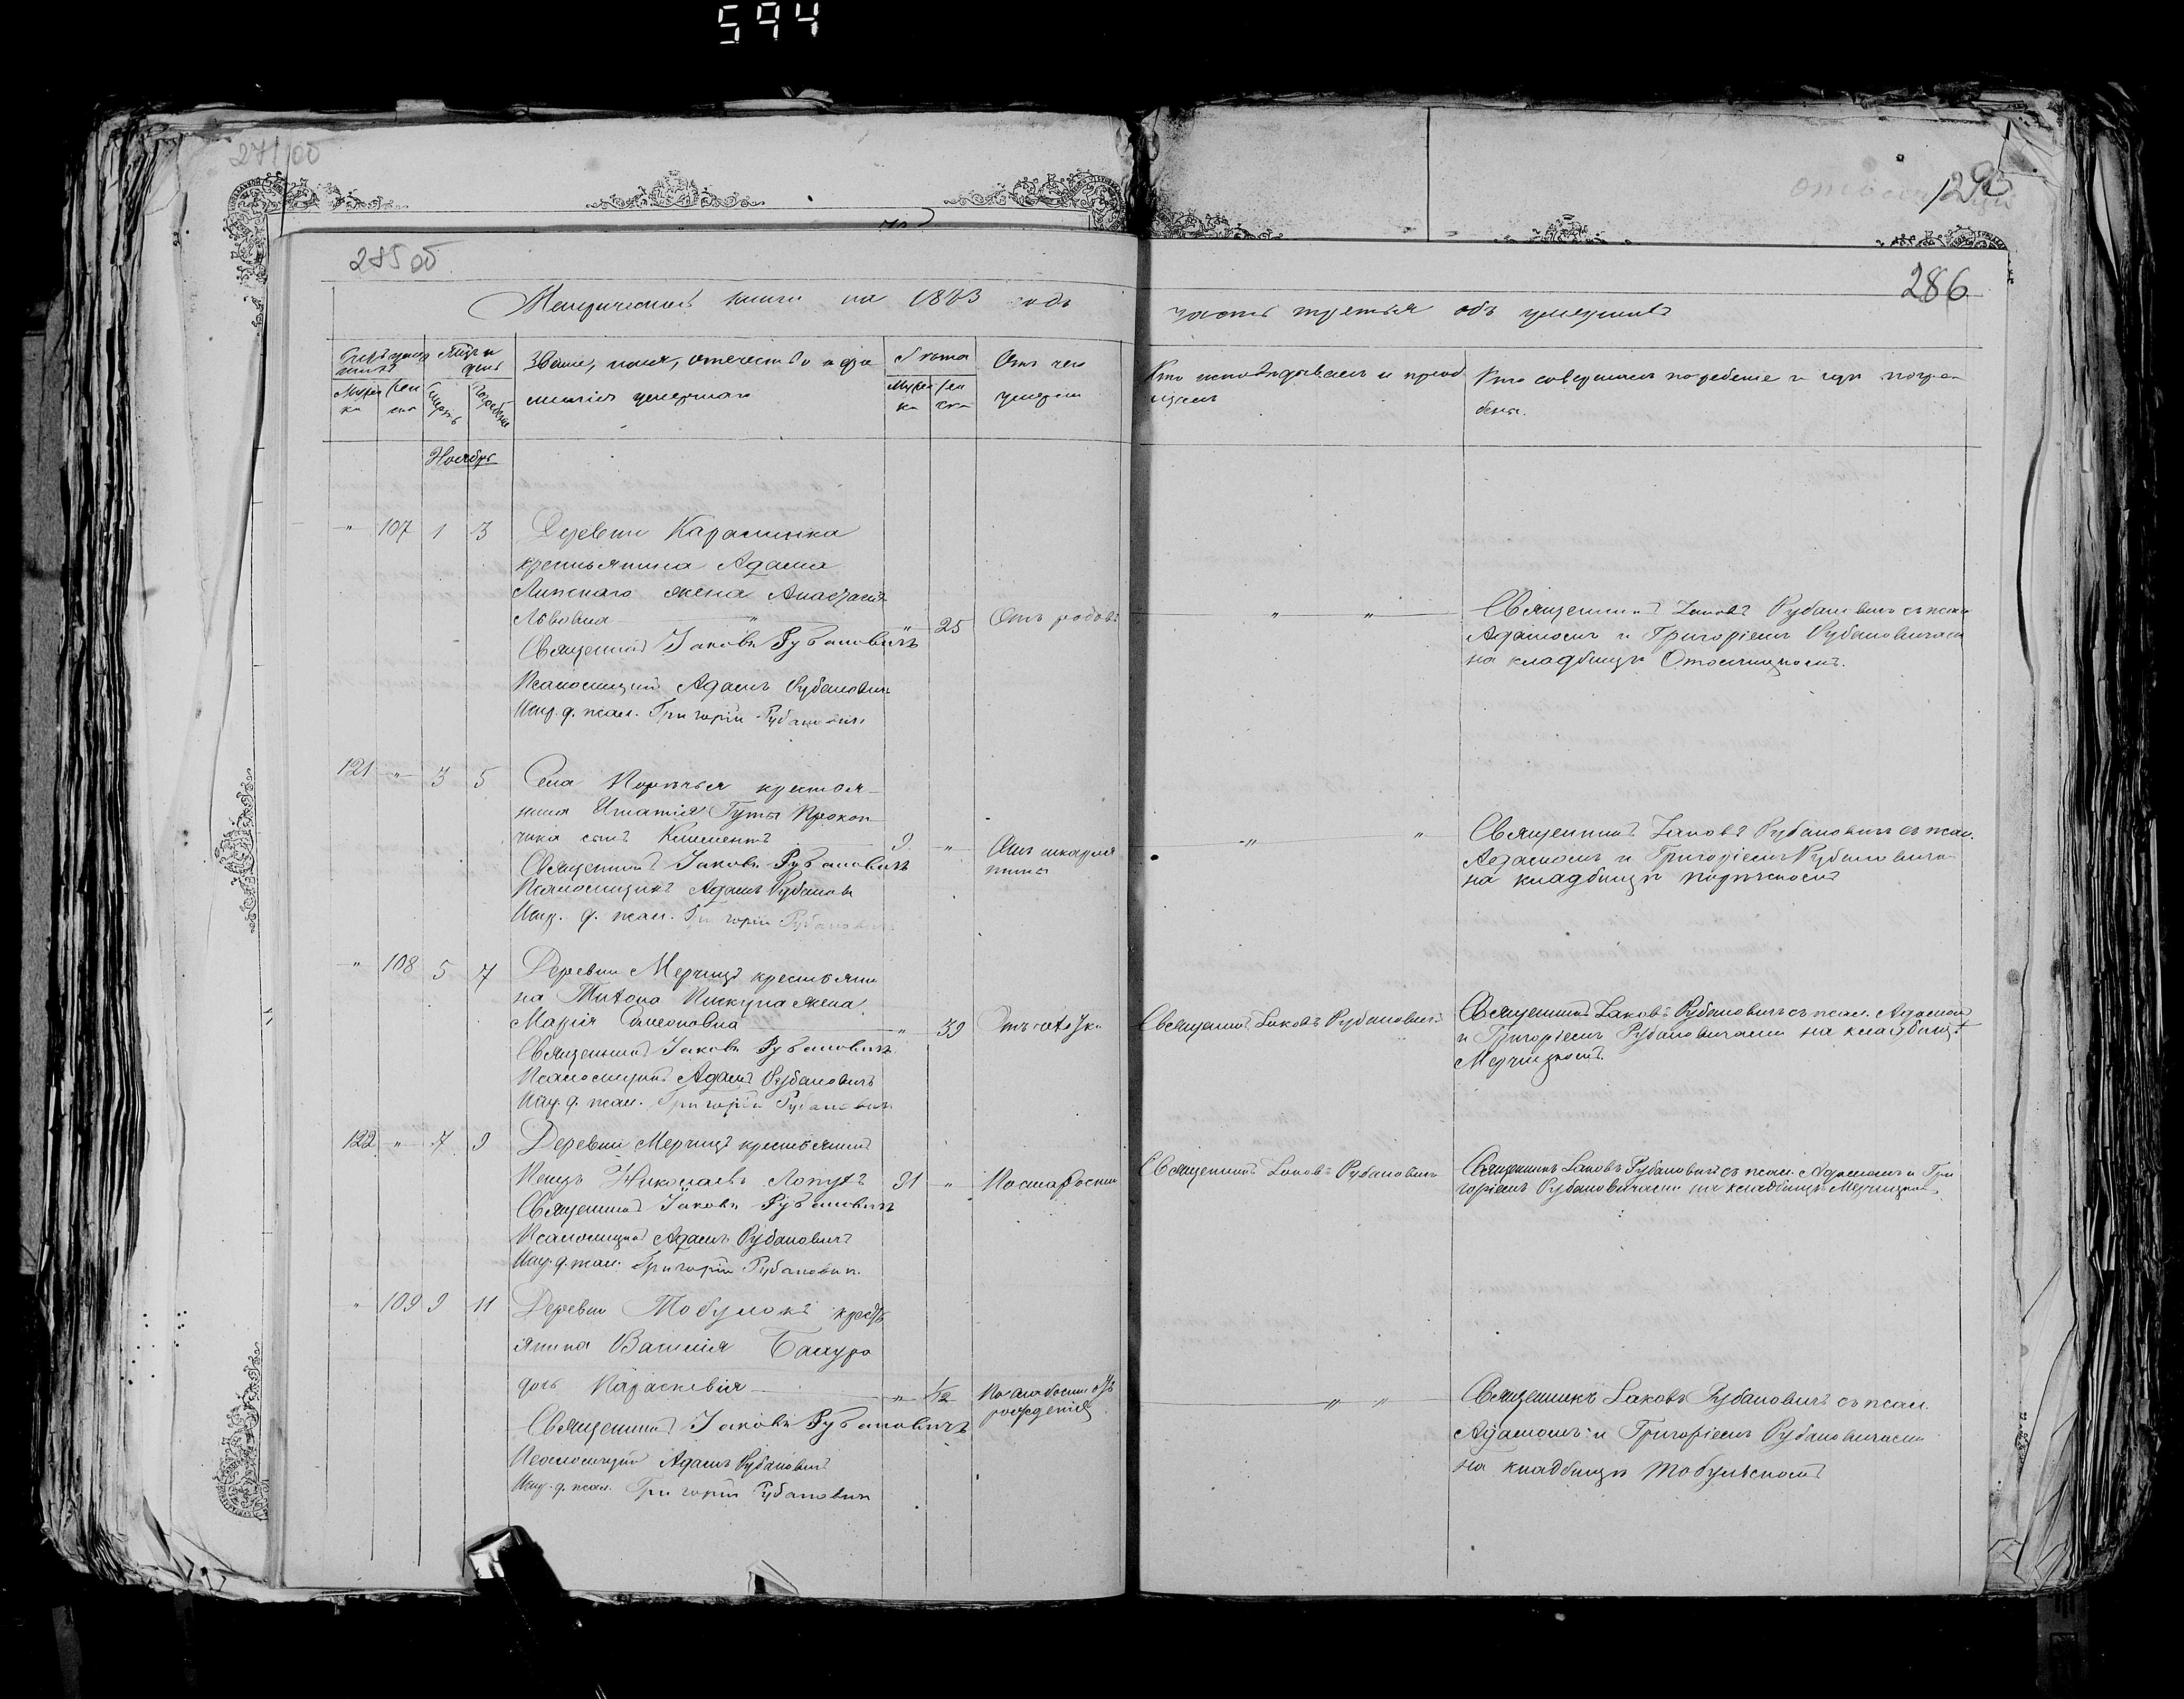 594
271 об
285 об
286
Метрической книги на 1883 годъ
часть третья объ умершихъ
Счетъ умершихъ
Мужеска
Женска
Мѣсяцъ и день
Смерть
Погребенія
Званіе, имя, отечество и фамилія умершаго
Лѣта
Мужеска
Женска
Отъ чего умеръ
Кто исповѣдывалъ и пріобщалъ
Кто совершалъ погребеніе и гдѣ погребены.
Ноябрь
" 107 1 3 Деревни
крестьянина Адама
Липскаго жена Анастасія
Львовна " 25 Отъ родовъ " "
Священникъ Іаковъ Рубановичъ
Псаломщикъ Адамъ Рубановичъ
Исп. д. псал. Григорій Рубановичъ
Священникъ Іаковъ Рубановичъ съ псал.
Адамомъ и Григоріемъ Рубановичами
на кладбищѣ
121 " 3 5 Села Порѣчья крестья-
нина Игнатія Гуты Прокоп-
чика сынъ Климентъ 9 " Отъ скарла-
тины " "
Священникъ Іаковъ Рубановичъ
Псаломщикъ Адамъ Рубановичъ
Исп. д. псал. Григорій Рубановичъ
Священникъ Іаковъ Рубановичъ съ псал.
Адамомъ и Григоріемъ Рубановичами
на кладбищѣ Порѣчскомъ
" 108 5 7 Деревни Мерчицъ крестьяни-
на Титона Пискуна жена
Марія Симеоновна " 39 Отъ чахотки
Священникъ Іаковъ Рубановичъ
Псаломщикъ Адамъ Рубановичъ
Исп. д. псал. Григорій Рубановичъ
Священникъ Іаковъ Рубановичъ
Священникъ Іаковъ Рубановичъ съ псал. Адамомъ
и Григоріемъ Рубановичами на кладбищѣ
Мерчицкомъ.
122 " 7 9 Деревни Мерчицъ крестьянинъ
Николаевъ Лопухъ 91 " По старости
Священникъ Іаковъ Рубановичъ
Псаломщикъ Адамъ Рубановичъ
Исп. д. псал. Григорій Рубановичъ
Священникъ Іаковъ Рубановичъ
Священникъ Іаковъ Рубановичъ съ псал. Адамомъ и Гри-
горіемъ Рубановичами на кладбищѣ Мерчицкомъ
" 109 9 11 Деревни Тобулокъ кресть-
янина Василія Бакуро
дочь Параскевія " 1/12 По слабости отъ
рожденія " "
Священникъ Іаковъ Рубановичъ
Псаломщикъ Адамъ Рубановичъ
Исп. д. псал. Григорій Рубановичъ
Священникъ Іаковъ Рубановичъ съ псал.
Адамомъ и Григоріемъ Рубановичами
на кладбищѣ Тобульскомъ